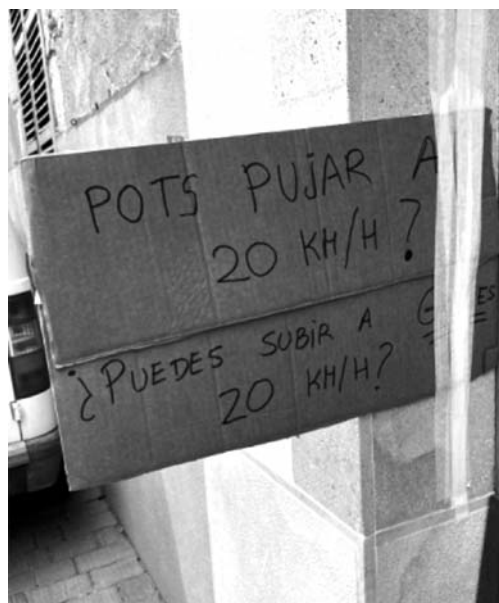 POTS PUJAR A
20 KH/H?
¿PUEDES SUBIR A
20 KH/H?